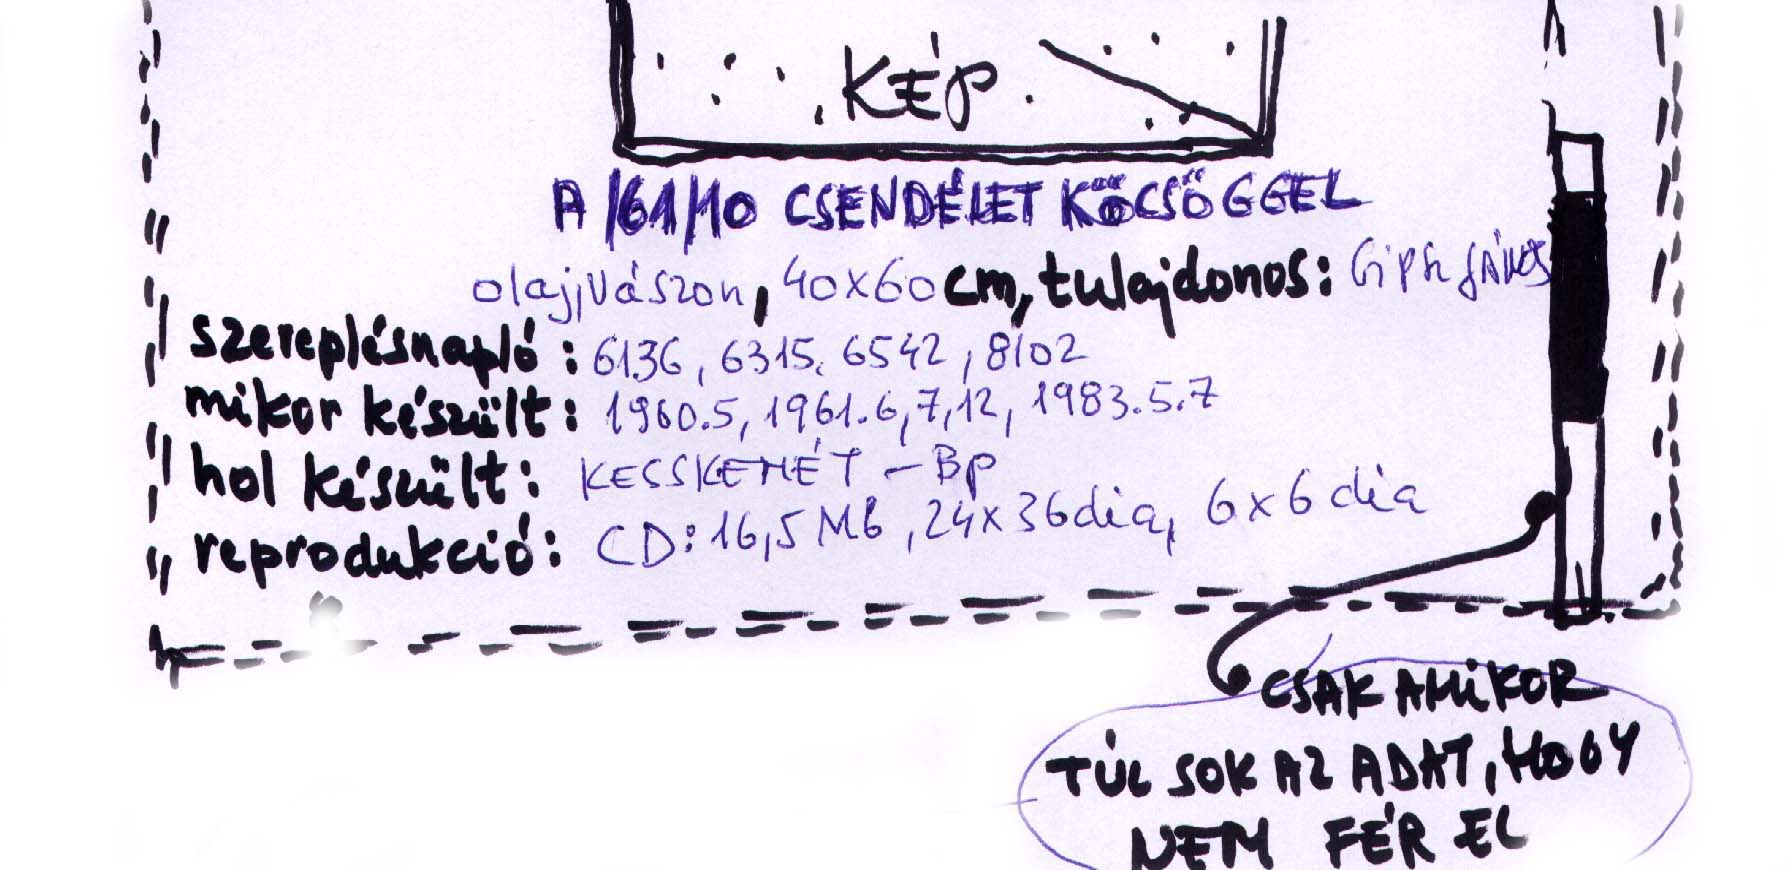 KÉP
A/61/10 CSENDÉLET KÖCSÖGGEL
olaj, vászon, 40x60 cm, tulajdonos: Gipsz JÁNOS
szereplésnapló: 6136, 6315, 6542, 8102
mikor készült: 1960.5, 1961.6,7,12, 1983.5.7
hol készült: KECSKEMÉT - Bp
reprodukció: CD: 16,5 Mb, 24x36 dia, 6x6 dia
CSAK AMIKOR
TÚL SOK AZ ADAT, HOGY
NEM FÉR EL